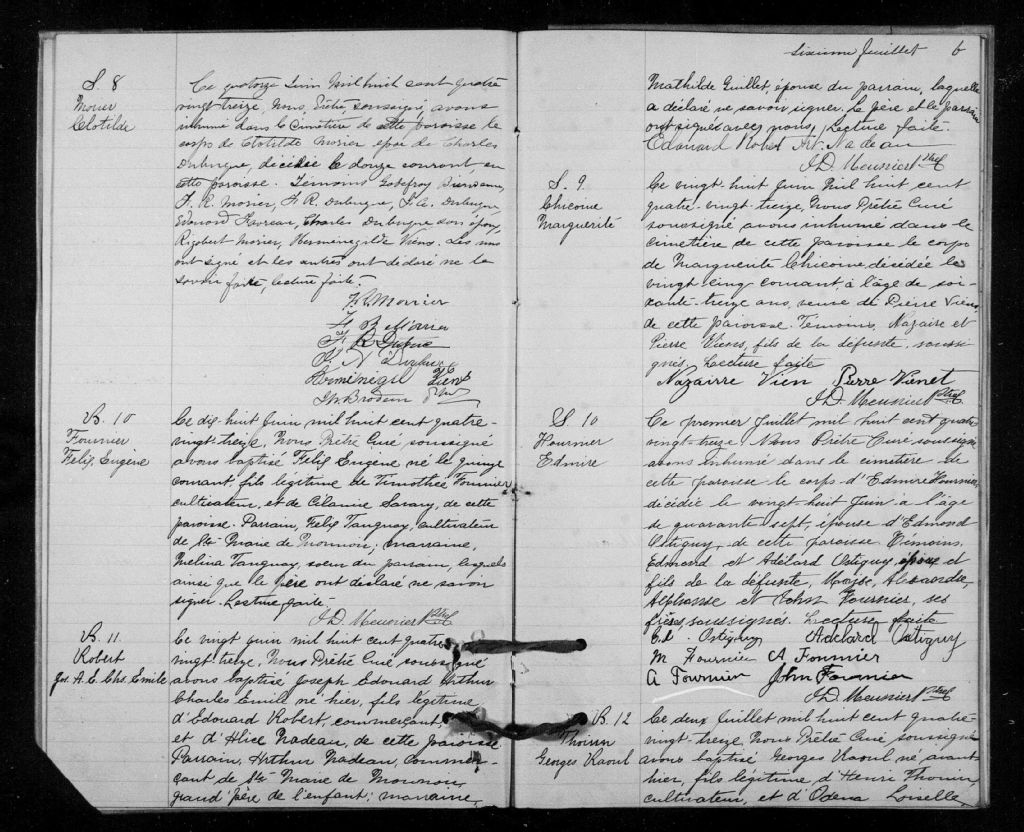 S. 8
Morier
Clotilde
Ce quatorze Juin Mil huit cent quatre
vingt treize, Nous, Prêtre soussigné, avons
inhumé dans le Cimetière de cette paroisse le
corps de Clotilde Morier épse de Charles
Dubuque, décédée le douze courant, en
cette paroisse. Témoins Godefroy
F. R. Morier, F. R. Dubuque, F. A. Dubuque,
Edouard Favreau, Charles Dubuque son époux,
Rigobert Morier, Herménégilde Viens. Les uns
ont signé et les autres ont déclaré ne le
savoir faire, lecture faite.
Morrier
F R Morier
F. R Dubuc
Herménégil Viens
B. 10
Fournier
Felix Eugène
Ce dix-huit Juin mil huit cent quatre-
vingt-treize, Nous Prêtre Curé soussigné
avons baptisé Felix Eugène né le quinze
courant, fils légitime de Timothée Fournier
cultivateur, et de Célanire Savary, de cette
paroisse. Parrain, Felix Tanguay, cultivateur
de Ste Marie de Monnoir; marraine,
Melina Tanguay, soeur du parrain, lesquels
ainsi que le père ont déclaré ne savoir
signer. Lecture faite.
J D. Meunier Ptre C
B. 11
Robert
Jos. A. E. Chs. Emile
Ce vingt Juin mil huit cent quatre
vingt-treize, Nous Prêtre Curé soussigné
avons baptisé Joseph Edouard Arthur
Charles Emile né hier, fils légitime
d'Edouard Robert, commerçant,
et d'Alice Nadeau, de cette paroisse
Parrain, Arthur Nadeau, Commer-
çant de Ste Marie de Monnoir,
grand'père de l'enfant; marraine,
Sixième Feuillet 6
Mathilde Guillet, épouse du parrain, laquelle
a déclaré ne savoir signer. Le père et le parrain
ont signés avec nous, Lecture faite.
Edouard Robert Art. Nadeau
J D. Meunier Ptre C
S. 9
Chicoine
Marguerite
Ce vingt-huit Juin Mil huit cent
quatre-vingt-treize, Nous Prêtre Curé
soussigné avons inhumé dans le
cimetière de cette paroisse le corps
de Marguerite Chicoine, décédée le
vingt cinq courant, à l'âge de soi-
xante-treize ans, veuve de Pierre Viens,
de cette paroisse. Témoins, Nazaire et
Pierre Viens, fils de la défunte, soussi-
gnés, Lecture faite
Nazairre Vien Pierre Vienet
J D. Meunier Ptre C
S. 10
Fournier
Edmire
Ce premier Juillet mil huit cent quatre
vingt-treize Nous Prêtre Curé soussigné
avons inhumé dans le cimetière de
cette paroisse le corps d'Edmire Fournier,
décédée le vingt huit Juin à l'âge
de quarante sept, épouse d'Edmond
Ostiguy, de cette paroisse. Témoins,
Edmond et Adélard Ostiguy, époux et
fils de la défunte, Moyse, Alexandre,
Alphonse et John Fournier, ses
frères, soussignés. Lecture faite
Ed. Ostiguy Adelard Ostiguy
M Fournier A Fournier
A Fournier John Fournier
J D. Meunier Ptre C
B. 12
Thoin
Georges Raoul
Ce deux Juillet mil huit cent quatre-
vingt-treize, Nous Prêtre Curé soussigné
avons baptisé Georges Raoul né avant
hier, fils légitime d'Henri Thouin,
cultivateur, et d'Odena Loiselle,